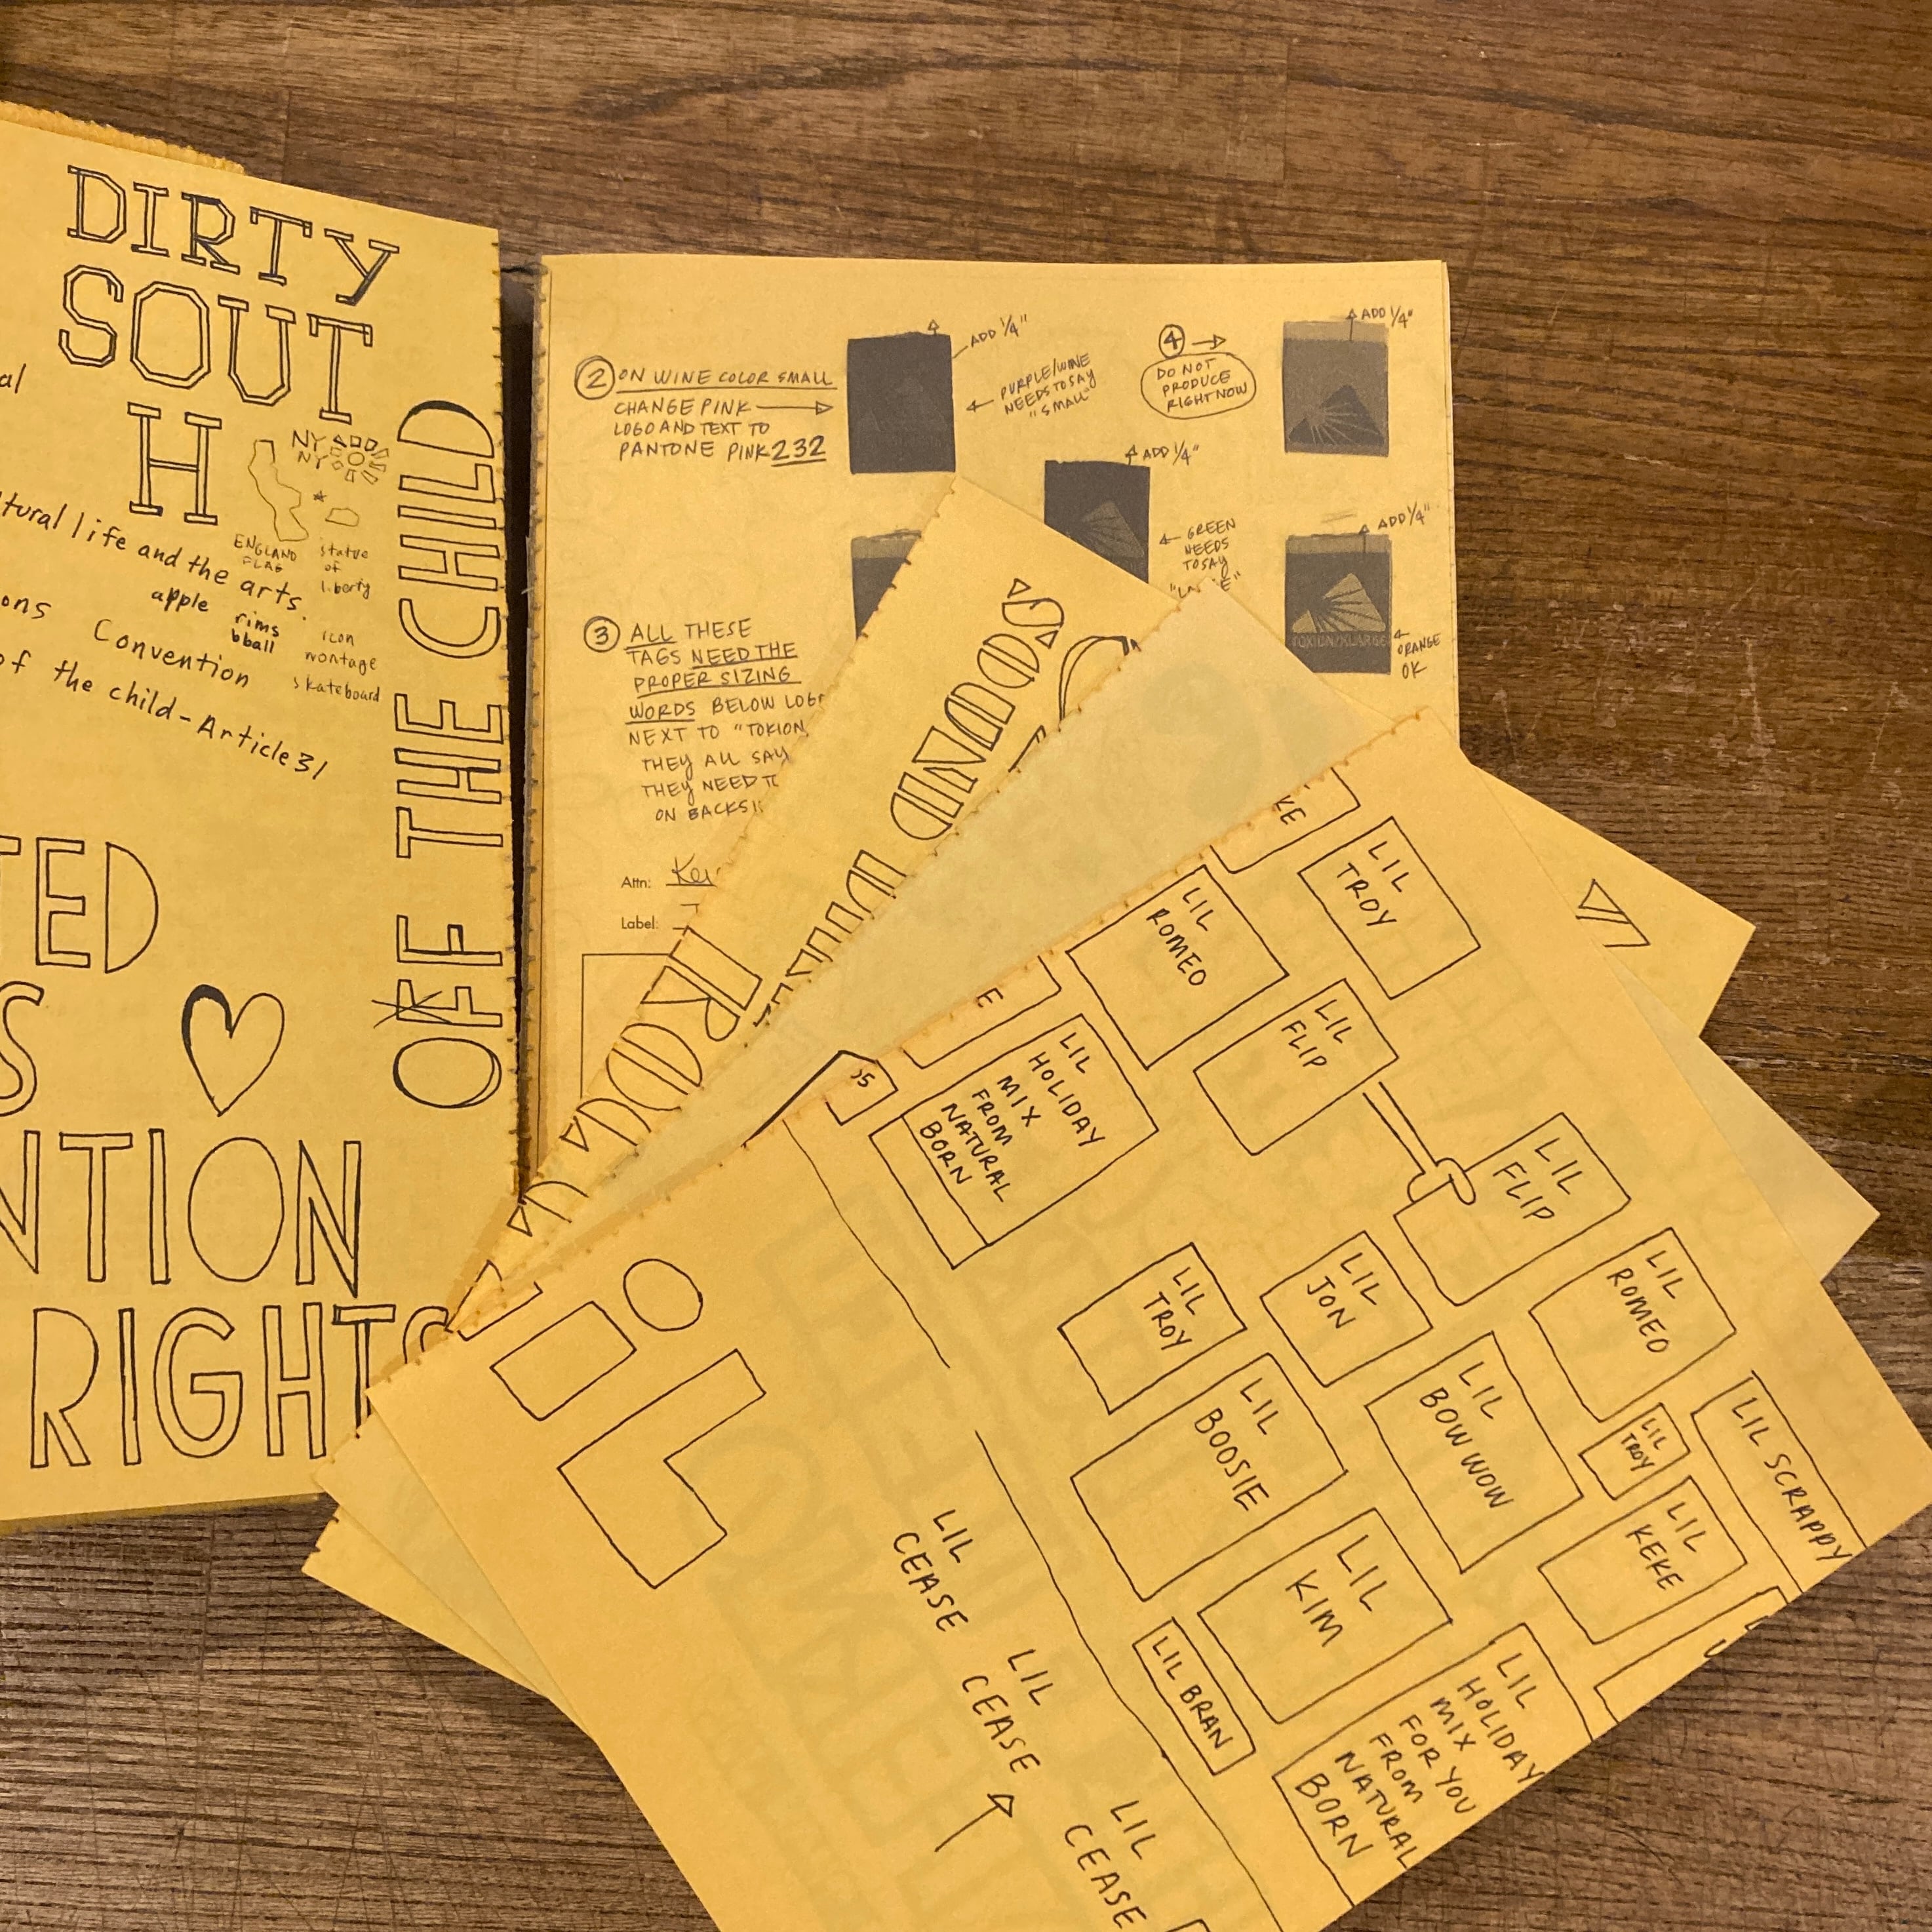 DIRTY
SOUT
H
al
NY
NY
ENGLAND
FLAG
statue
of
liberty
tural life and the arts.
apple
rims
bball
icon
montage
skateboard
ons Convention
of the child - Article 31
OFF THE CHILD
TED
S
NTION
RIGHTS
2 ON WINE COLOR SMALL
CHANGE PINK
LOGO AND TEXT TO
PANTONE PINK 232
ADD 1/4"
PURPLE/WINE
NEEDS TO SAY
"SMALL"
4
DO NOT
PRODUCE
RIGHT NOW
ADD 1/4"
ADD 1/4"
GREEN
NEEDS
TO SAY
ADD 1/4"
TOKION/XLARGE
ORANGE
OK
3 ALL THESE
TAGS NEED THE
PROPER SIZING
WORDS BELOW LOG
NEXT TO "TOKION
THEY ALL SAY
THEY NEED T
ON BACKSI
Attn:
Label:
SOUND
KE
LIL
TROY
LIL
ROMEO
LIL
FLIP
E
LIL
HOLIDAY
MIX
FROM
NATURAL
BORN
LIL
FLIP
LIL
TROY
LIL
JON
LIL
ROMEO
LIL
BOOSIE
LIL
BOW WOW
LIL
TROY
LIL SCRAPPY
LIL
KEKE
LIL
KIM
LIL BRAN
LIL
HOLIDAY
MIX
FOR YOU
FROM
NATURAL
BORN
LiL
LIL
CEASE
LIL
CEASE
LIL
CEASE